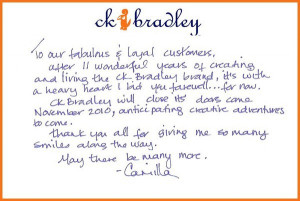 ck bradley
To our fabulous & loyal customers,
after 11 wonderful years of creating
and living the CK Bradley brand, it's with
a heavy heart I bid you farewell...for now.
CK Bradley will close its doors come
November 2010, anticipating creative adventures
to come.
Thank you all for giving me so many
smiles along the way.
May there be many more.
-Camilla